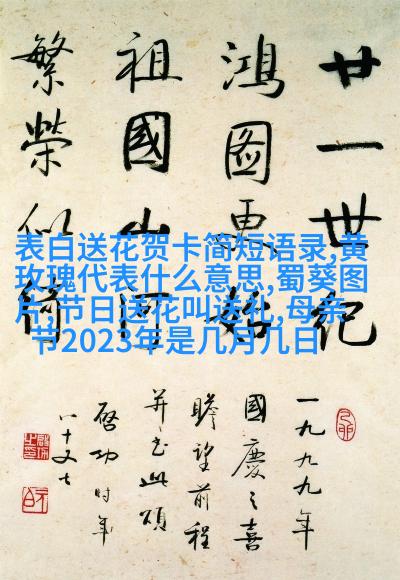 廿一世紀
鴻圖更始
祖國山河
繁榮似綺
一九九九年
國慶之喜
瞻望前程
并书此頌
啓功时年
八十又七
表白送花贺卡简短语录,黄
玫瑰代表什么意思,蜀葵图
片,节日送花叫送礼,母亲
节2023年是几月几日